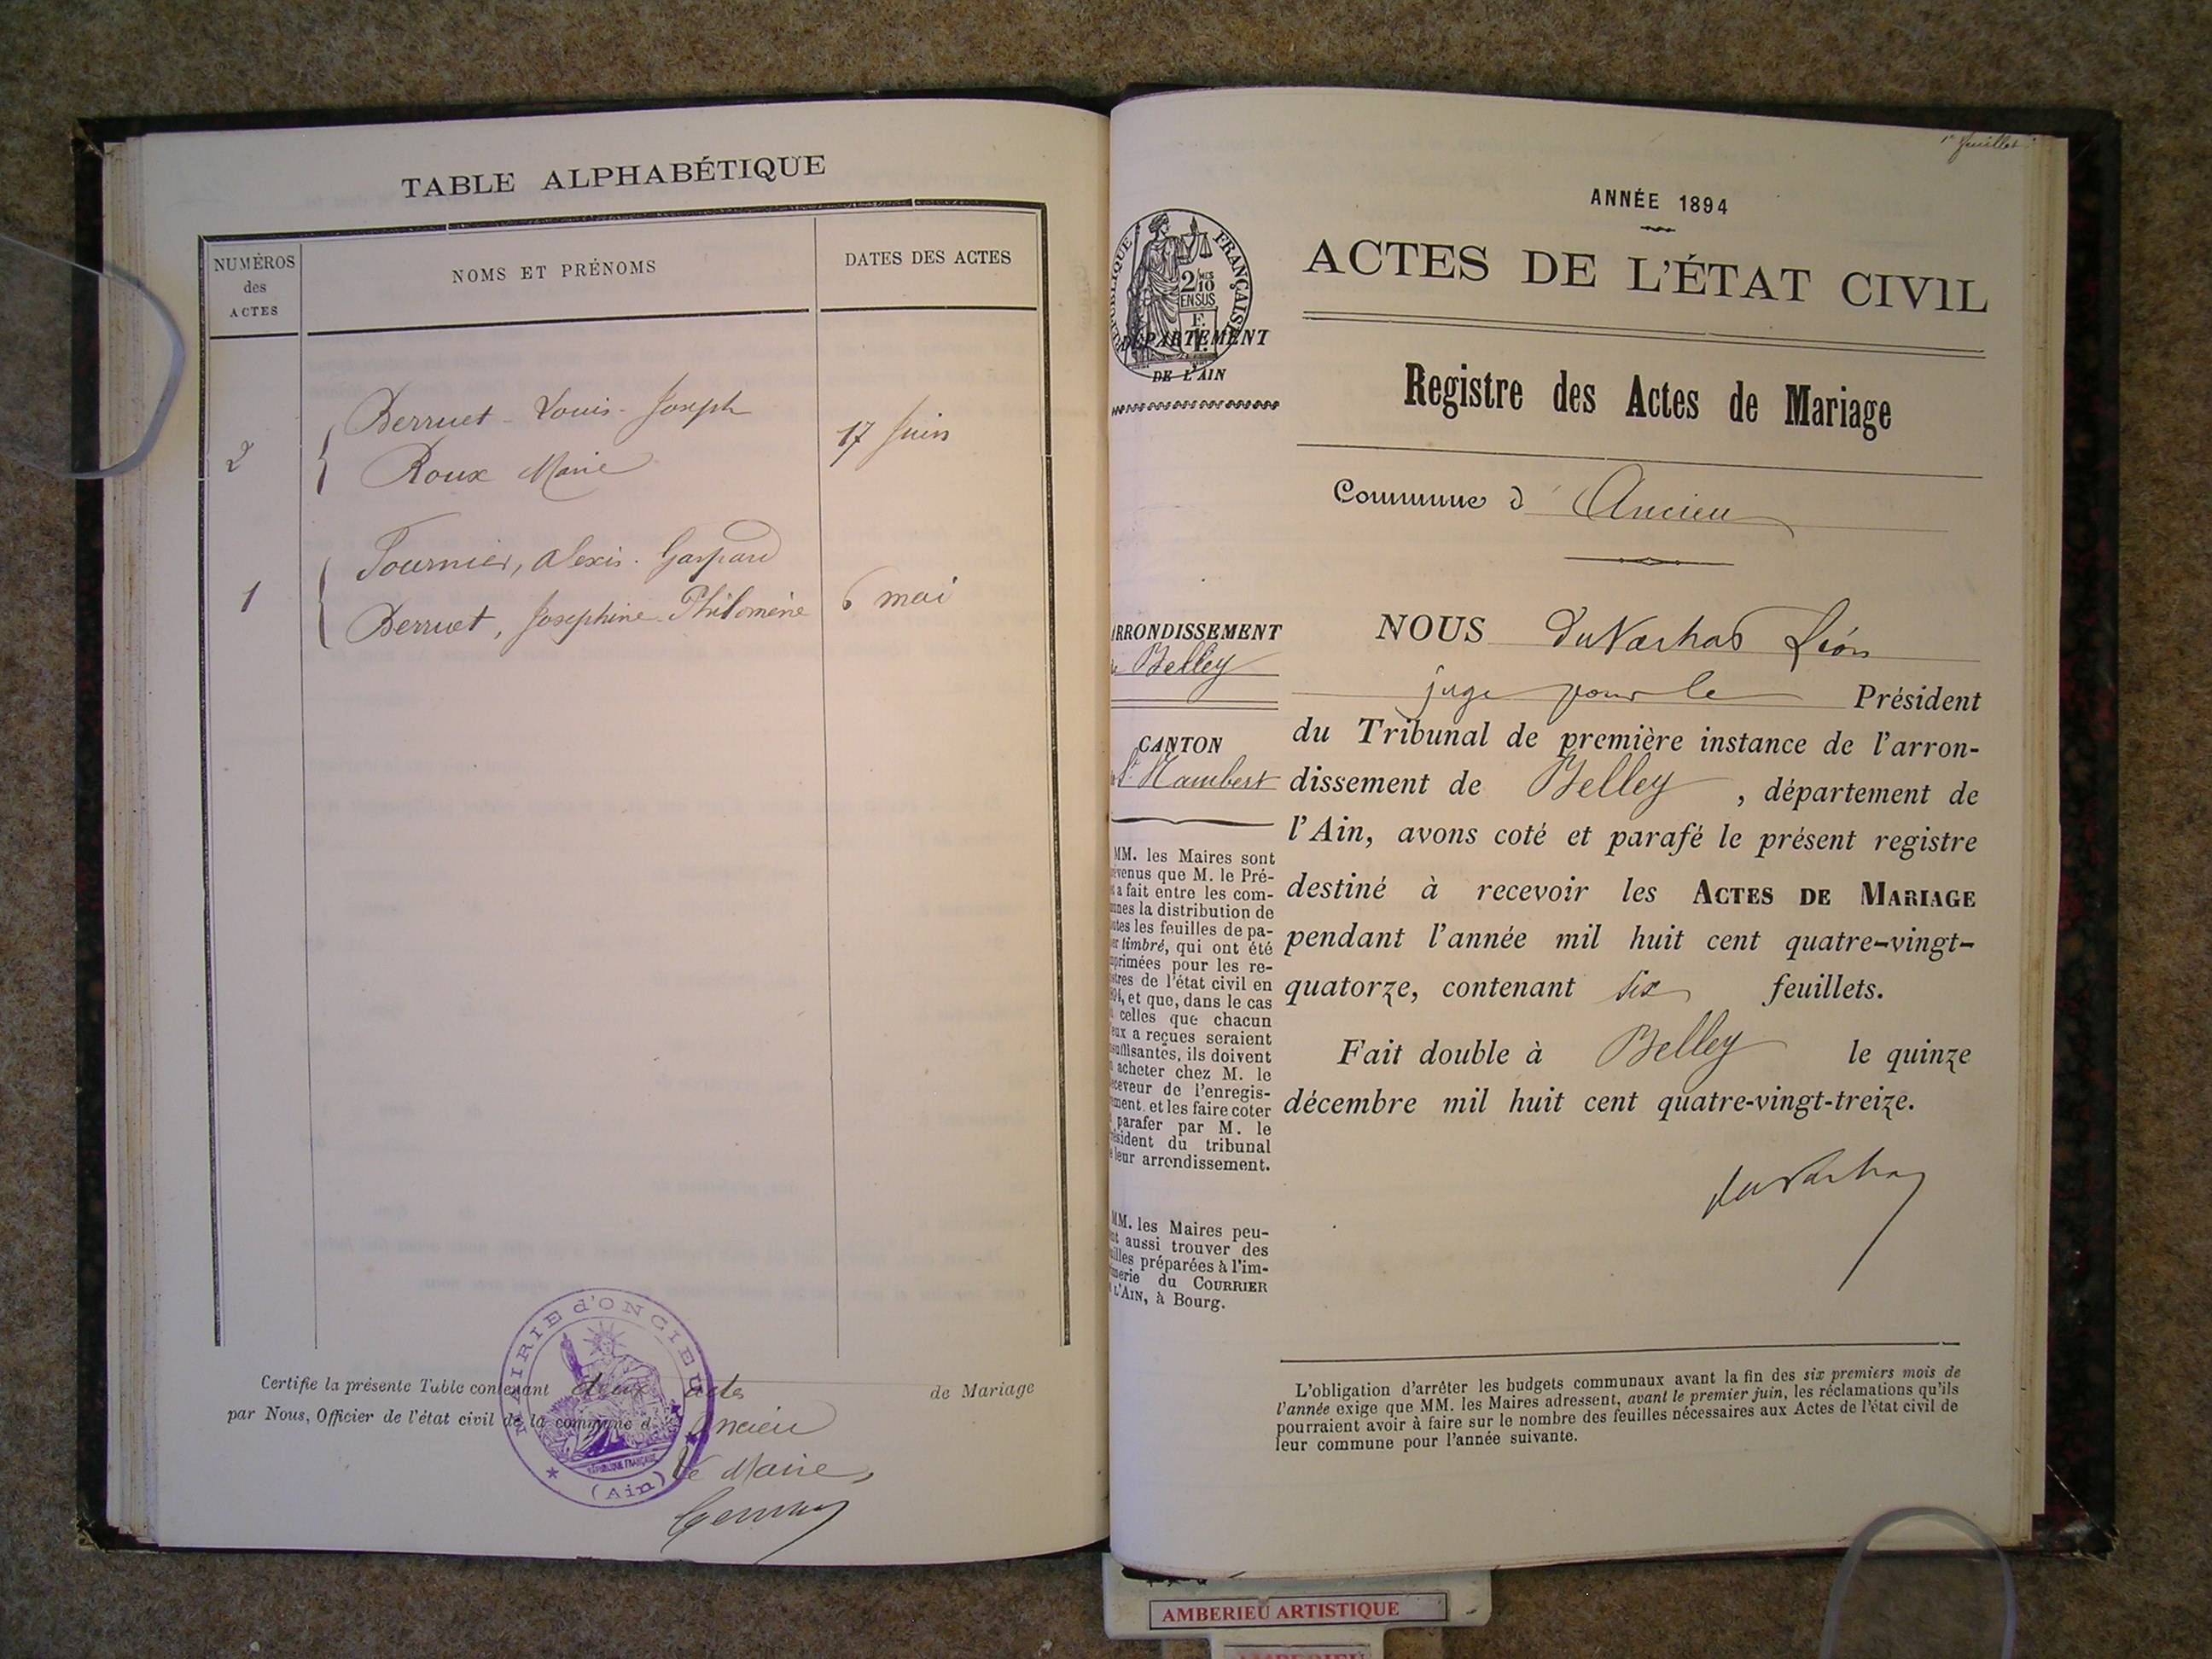 TABLE ALPHABÉTIQUE
NUMÉROS
des
ACTES
NOMS ET PRÉNOMS
DATES DES ACTES
2
Berruet Louis Joseph
Roux Marie
17 Juin
1
Tournier, Alexis Gaspard
Berruet, Josephine Philomène
6 mai
Certifie la présente Table contenant deux actes de Mariage
par Nous, Officier de l'état civil de la commune d' Oncieu
Le Maire,
MAIRIE d'ONCIEU
RÉPUBLIQUE FRANÇAISE
(Ain)
1er feuillet
ANNÉE 1894
ACTES DE L'ÉTAT CIVIL
RÉPUBLIQUE FRANÇAISE
2/10 MES
EN SUS
DÉPARTEMENT
DE L'AIN
Registre des Actes de Mariage
Commune d' Oncieu
ARRONDISSEMENT
de Belley
CANTON
St Rambert
NOUS Léon
juge pour le Président
du Tribunal de première instance de l'arron-
dissement de Belley, département de
l'Ain, avons coté et parafé le présent registre
destiné à recevoir les ACTES DE MARIAGE
pendant l'année mil huit cent quatre-vingt-
quatorze, contenant six feuillets.
Fait double à Belley le quinze
décembre mil huit cent quatre-vingt-treize.
MM. les Maires sont
evenus que M. le Pré-
t a fait entre les com-
unes la distribution de
utes les feuilles de pa-
er timbré, qui ont été
primées pour les re-
stres de l'état civil en
94, et que, dans le cas
celles que chacun
eux a reçues seraient
suffisantes, ils doivent
acheter chez M. le
eceveur de l'enregis-
ment et les faire coter
parafer par M. le
résident du tribunal
e leur arrondissement.
MM. les Maires peu-
nt aussi trouver des
illes préparées à l'im-
merie du COURRIER
L'AIN, à Bourg.
L'obligation d'arrêter les budgets communaux avant la fin des six premiers mois de
l'année exige que MM. les Maires adressent, avant le premier juin, les réclamations qu'ils
pourraient avoir à faire sur le nombre des feuilles nécessaires aux Actes de l'état civil de
leur commune pour l'année suivante.
AMBERIEU ARTISTIQUE
AMBERIEU